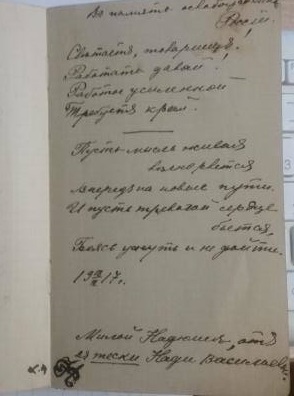 Въ память освобожденія
Россіи.
Свѣтаетъ, товарищъ!
Работать давай!
Работы усиленной
Требуетъ край.
Пусть мысль живая
вольно рвется
впередъ на новые пути.
И пусть тревогой сердце
бьется,
Боясь уснуть и не дойти.
17г.
Милой Надюшѣ, отъ
ея тезки Нади Василье